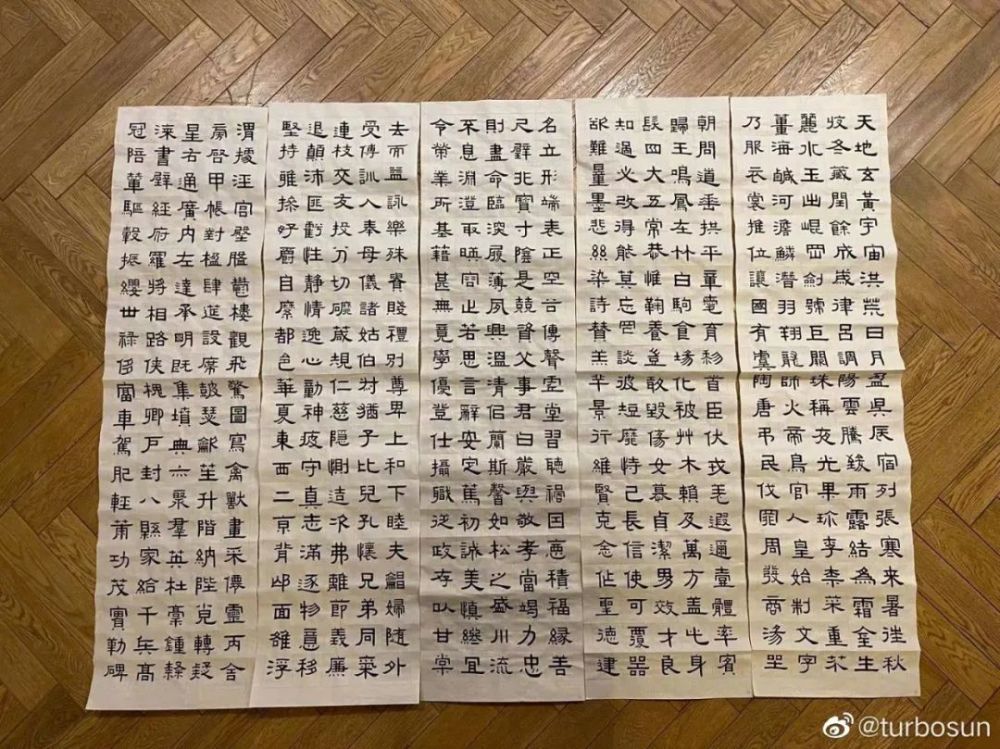 天地玄黃宇宙洪荒日月盈昃辰宿列張寒来暑往秋
收冬藏閏餘成歲律呂調陽雲騰致雨露結為霜金生
麗水玉出崐岡劍號巨闕珠稱夜光果珍李柰菜重芥
薑海鹹河澹鱗潛羽翔龍師火帝鳥官人皇始制文字
乃服衣裳推位讓國有虞陶唐弔民伐罪周發商湯坐
朝問道垂拱平章愛育黎首臣伏戎羌遐邇壹體率賓
歸王鳴鳳在竹白駒食場化被艸木賴及萬方蓋此身
髮四大五常恭惟鞠養豈敢毀傷女慕貞潔男效才良
知過必改得能莫忘罔談彼短靡恃己長信使可覆器
欲難量墨悲絲染詩贊羔羊景行維賢克念作聖德建
名立形端表正空谷傳聲虛堂習聽禍因惡積福緣善
尺璧非寶寸陰是競資父事君曰嚴與敬孝當竭力忠
則盡命臨深履薄夙興溫清佀蘭斯馨如松之盛川流
不息淵澄取暎容止若思言辭安定篤初誠美慎終宜
令榮業所基藉甚無竟學優登仕攝職從政存以甘棠
去而益詠樂殊貴賤禮別尊卑上和下睦夫唱婦随外
受傅訓入奉母儀諸姑伯叔猶子比兒孔懷兄弟同氣
連枝交友投分切磨箴規仁慈隐惻造次弗離節義廉
退顛沛匪虧性静情逸心動神疲守真志滿逐物意移
堅持雅操好爵自縻都邑華夏東西二京背邙面雒浮
渭據涇宮壂盤鬱樓觀飛驚圖寫禽獸畫采僊靈丙舍
旁啓甲帳對楹肆筵設席鼓瑟龡笙升階納陛弁轉疑
星右通廣内左達承明既集墳典亦聚羣英杜稾鍾隸
漆書壁經府羅將相路俠槐卿戶封八縣家給千兵高
冠陪輦驅轂振纓世禄侈富車駕肥輕策功茂實勒碑
@turbosun